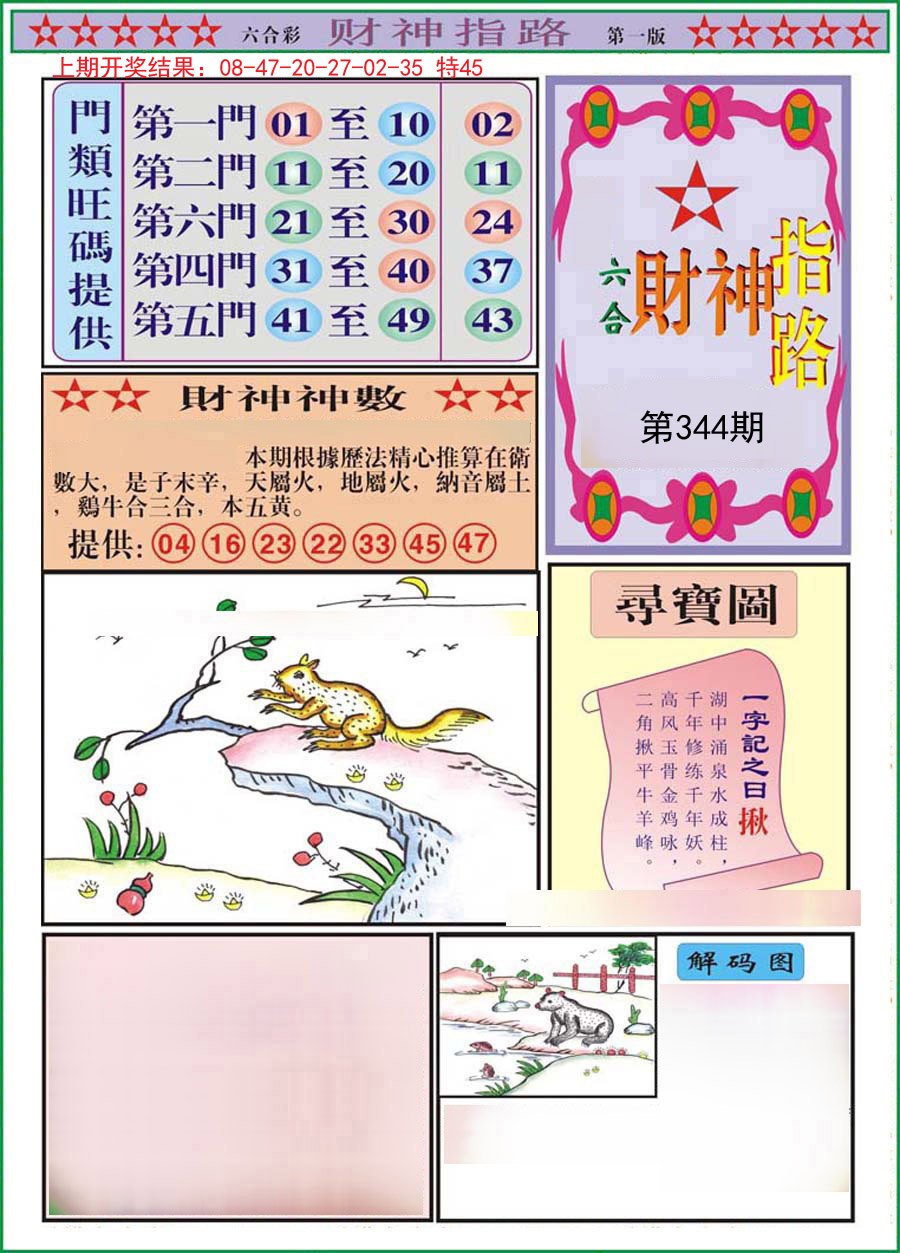 六合彩 财神指路 第一版
上期开奖结果：08-47-20-27-02-35 特45
門類旺碼提供
第一門 01 至 10 02
第二門 11 至 20 11
第六門 21 至 30 24
第四門 31 至 40 37
第五門 41 至 49 43
六合
財神
指路
第344期
財神神數
本期根據歷法精心推算在術
數大，是子末辛，天屬火，地屬火，納音屬土
，鷄牛合三合，本五黄。
提供: 04 16 23 22 33 45 47
尋寶圖
一字記之曰 揪
湖中涌泉水成柱，
千年修练千年妖。
高风玉骨金鸡咏，
二角揪平牛羊峰。
解码图